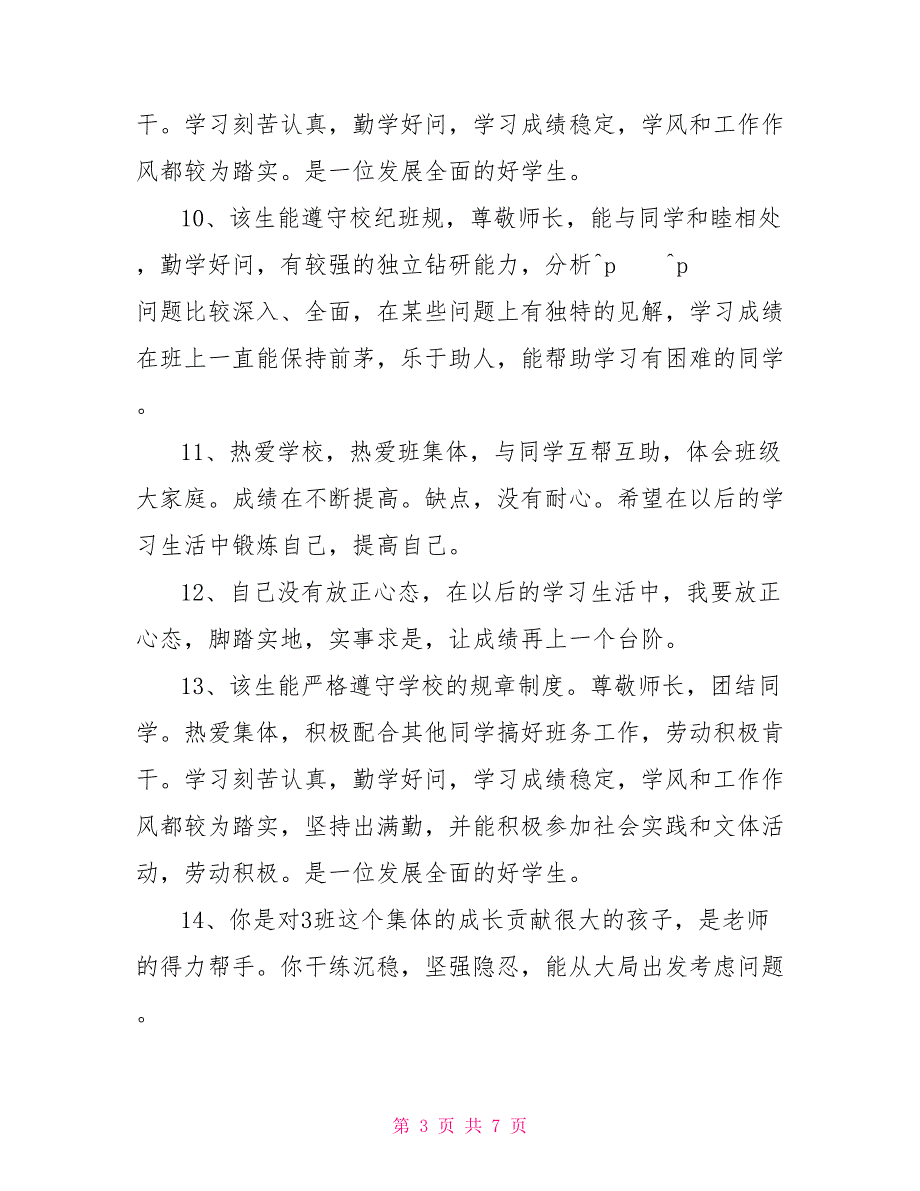 干。学习刻苦认真，勤学好问，学习成绩稳定，学风和工作作
风都较为踏实。是一位发展全面的好学生。
10、该生能遵守校纪班规，尊敬师长，能与同学和睦相处
，勤学好问，有较强的独立钻研能力，分析^p ^p
问题比较深入、全面，在某些问题上有独特的见解，学习成绩
在班上一直能保持前茅，乐于助人，能帮助学习有困难的同学
。
11、热爱学校，热爱班集体，与同学互帮互助，体会班级
大家庭。成绩在不断提高。缺点，没有耐心。希望在以后的学
习生活中锻炼自己，提高自己。
12、自己没有放正心态，在以后的学习生活中，我要放正
心态，脚踏实地，实事求是，让成绩再上一个台阶。
13、该生能严格遵守学校的规章制度。尊敬师长，团结同
学。热爱集体，积极配合其他同学搞好班务工作，劳动积极肯
干。学习刻苦认真，勤学好问，学习成绩稳定，学风和工作作
风都较为踏实，坚持出满勤，并能积极参加社会实践和文体活
动，劳动积极。是一位发展全面的好学生。
14、你是对3班这个集体的成长贡献很大的孩子，是老师
的得力帮手。你干练沉稳，坚强隐忍，能从大局出发考虑问题
。
第 3 页 共 7 页